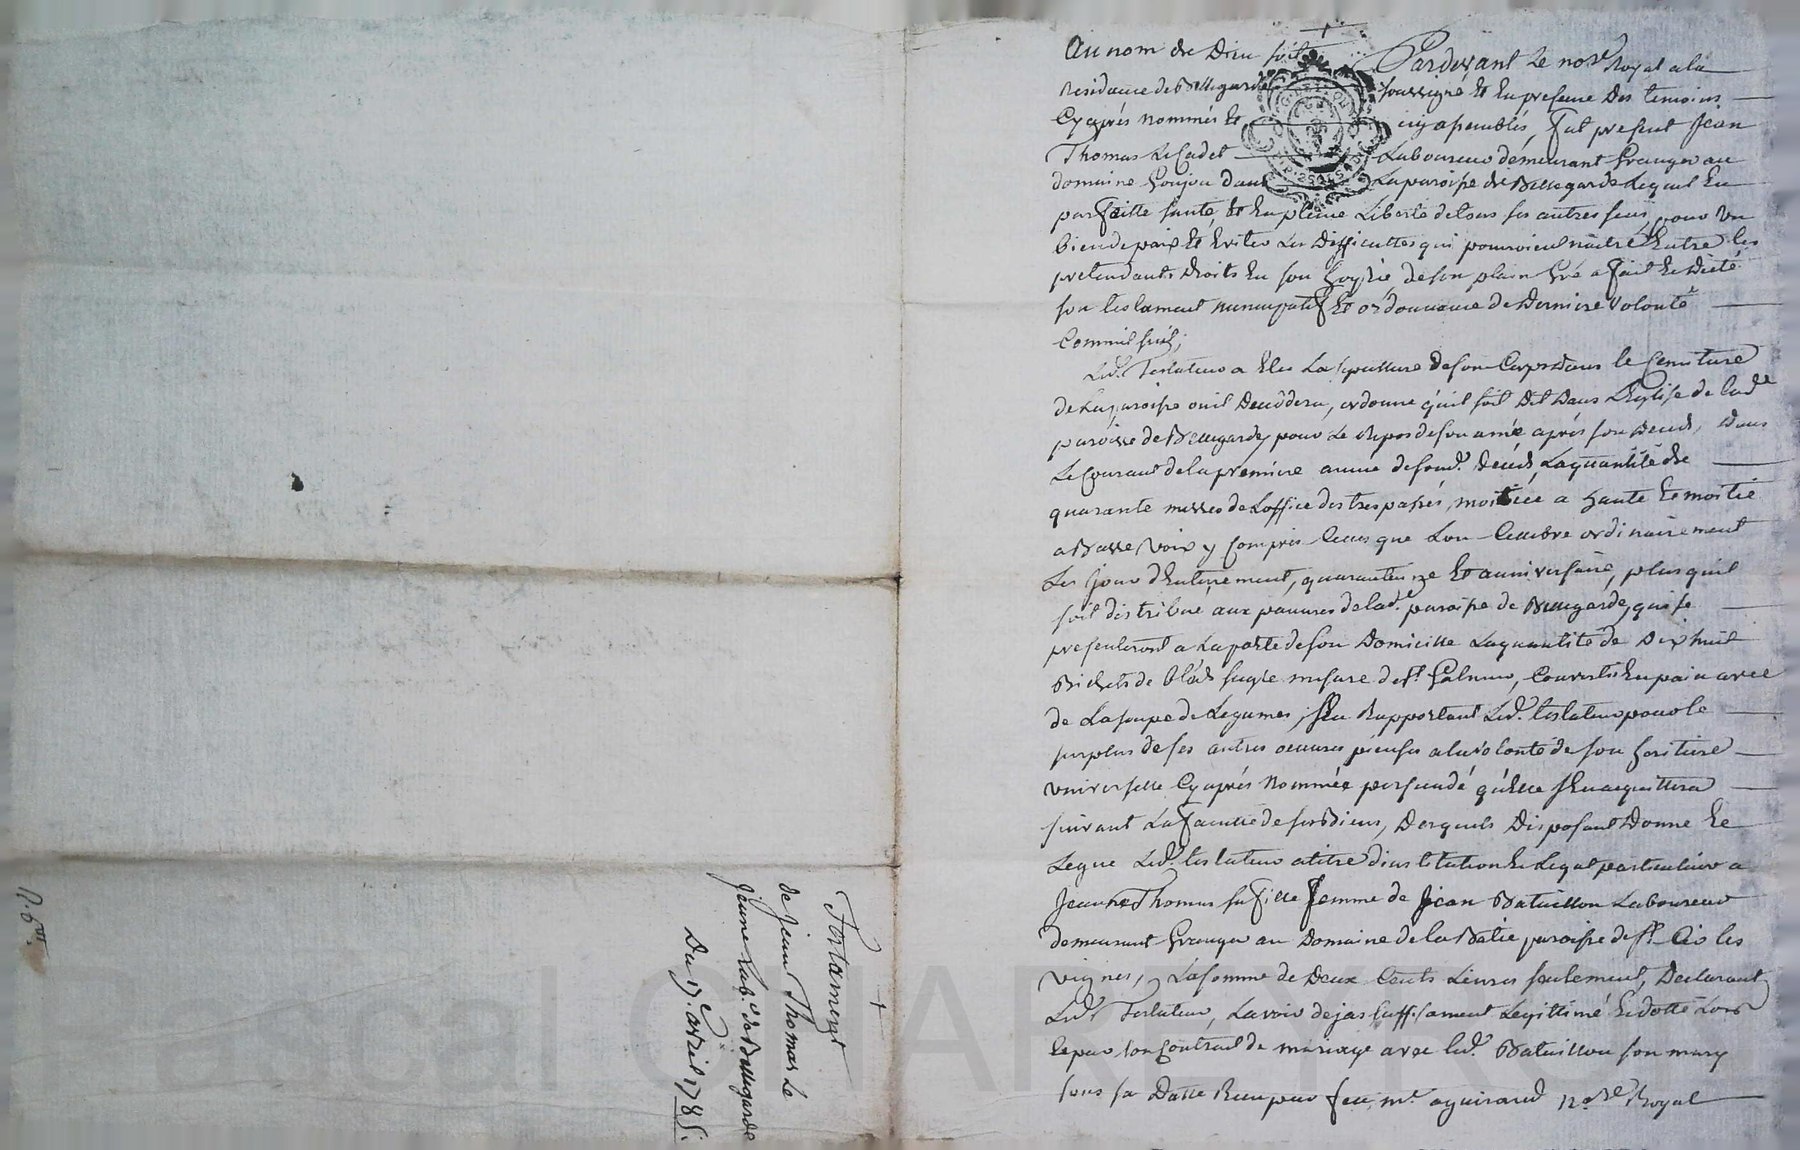 Au nom de Dieu soit Pardevant Le no.re Royal a la
residance de Bellegarde soussigné Et En presence Des temoins
Cy après Nommés Et assemblés, fut present Jean
Thomas Le Cadet Laboureur demeurant Granger au
domaine Goujon dans La paroisse de Bellegarde Lequel En
parfaitte santé, Et En pleine Liberté de tous ses autres sens, pour Un
bien de paix Et Eviter Les Difficultes qui pourroient naitre Entre les
pretendants Droits En son hoyrie, de son plain Gré a fait Et Dicté
son testament nuncupatif Et ordonnance de Derniere Volonté
Comme suit;
Led. Testateur a Elu La sepulture de son Corps Dans le Cemitiere
de La paroisse ou il Decedera, ordonne qu'il soit Dit Dans L'Eglise de lad.e
paroisse de Bellegarde, pour Le Repos de son ame après son Decés, Dans
Le Courant de la premiere année de sond. Decés, La quantité de
quarante messes de L'office des trespassés, moitiée a haute Et moitié
a Basse Voix y Compris Celles que L'on Celebre ordinairement
Les jour d'Enterrement, quarantenne Et anniversaire, plus qu'il
soit distribué, aux pauvres de lad.e paroisse de Bellegarde, qui se
presenteront a La porte de son Domicille La quantité de Dix huit
Bichets de bled seigle mesure de S.t Galmier, Convertis En pain avec
de La soupe de Legumes, s'En Rapportant Led. testateur pour le
surplus de ses autres oeuvres pieuses a la Volonté de son heritiere
Universelle Cy après Nommée persuadé qu'Elle s'En acquittera
suivant La faculté de ses Biens, Desquels Disposant Donne Et
Legue Led. testateur a titre d'institution Et Legat particulier a
Jeanne Thomas sa fille femme de Jean Bataillon Laboureur
demeurant Granger au Domaine de la Batie paroisse de S.t Cir les
Vignes, La somme de Deux Cents Livres seulement, Declarant
Led. Testateur, L'avoir deja suffisament Legittimé Et dotté Lors
Et par son Contract de mariage avec led. Bataillon son mary
sous sa Datte Reçu par feu, m.e aguiraud no.re Royal
Testament
de Jean Thomas Le
jeune Lab.r de Bellegarde
Du 17.e avril 1785.